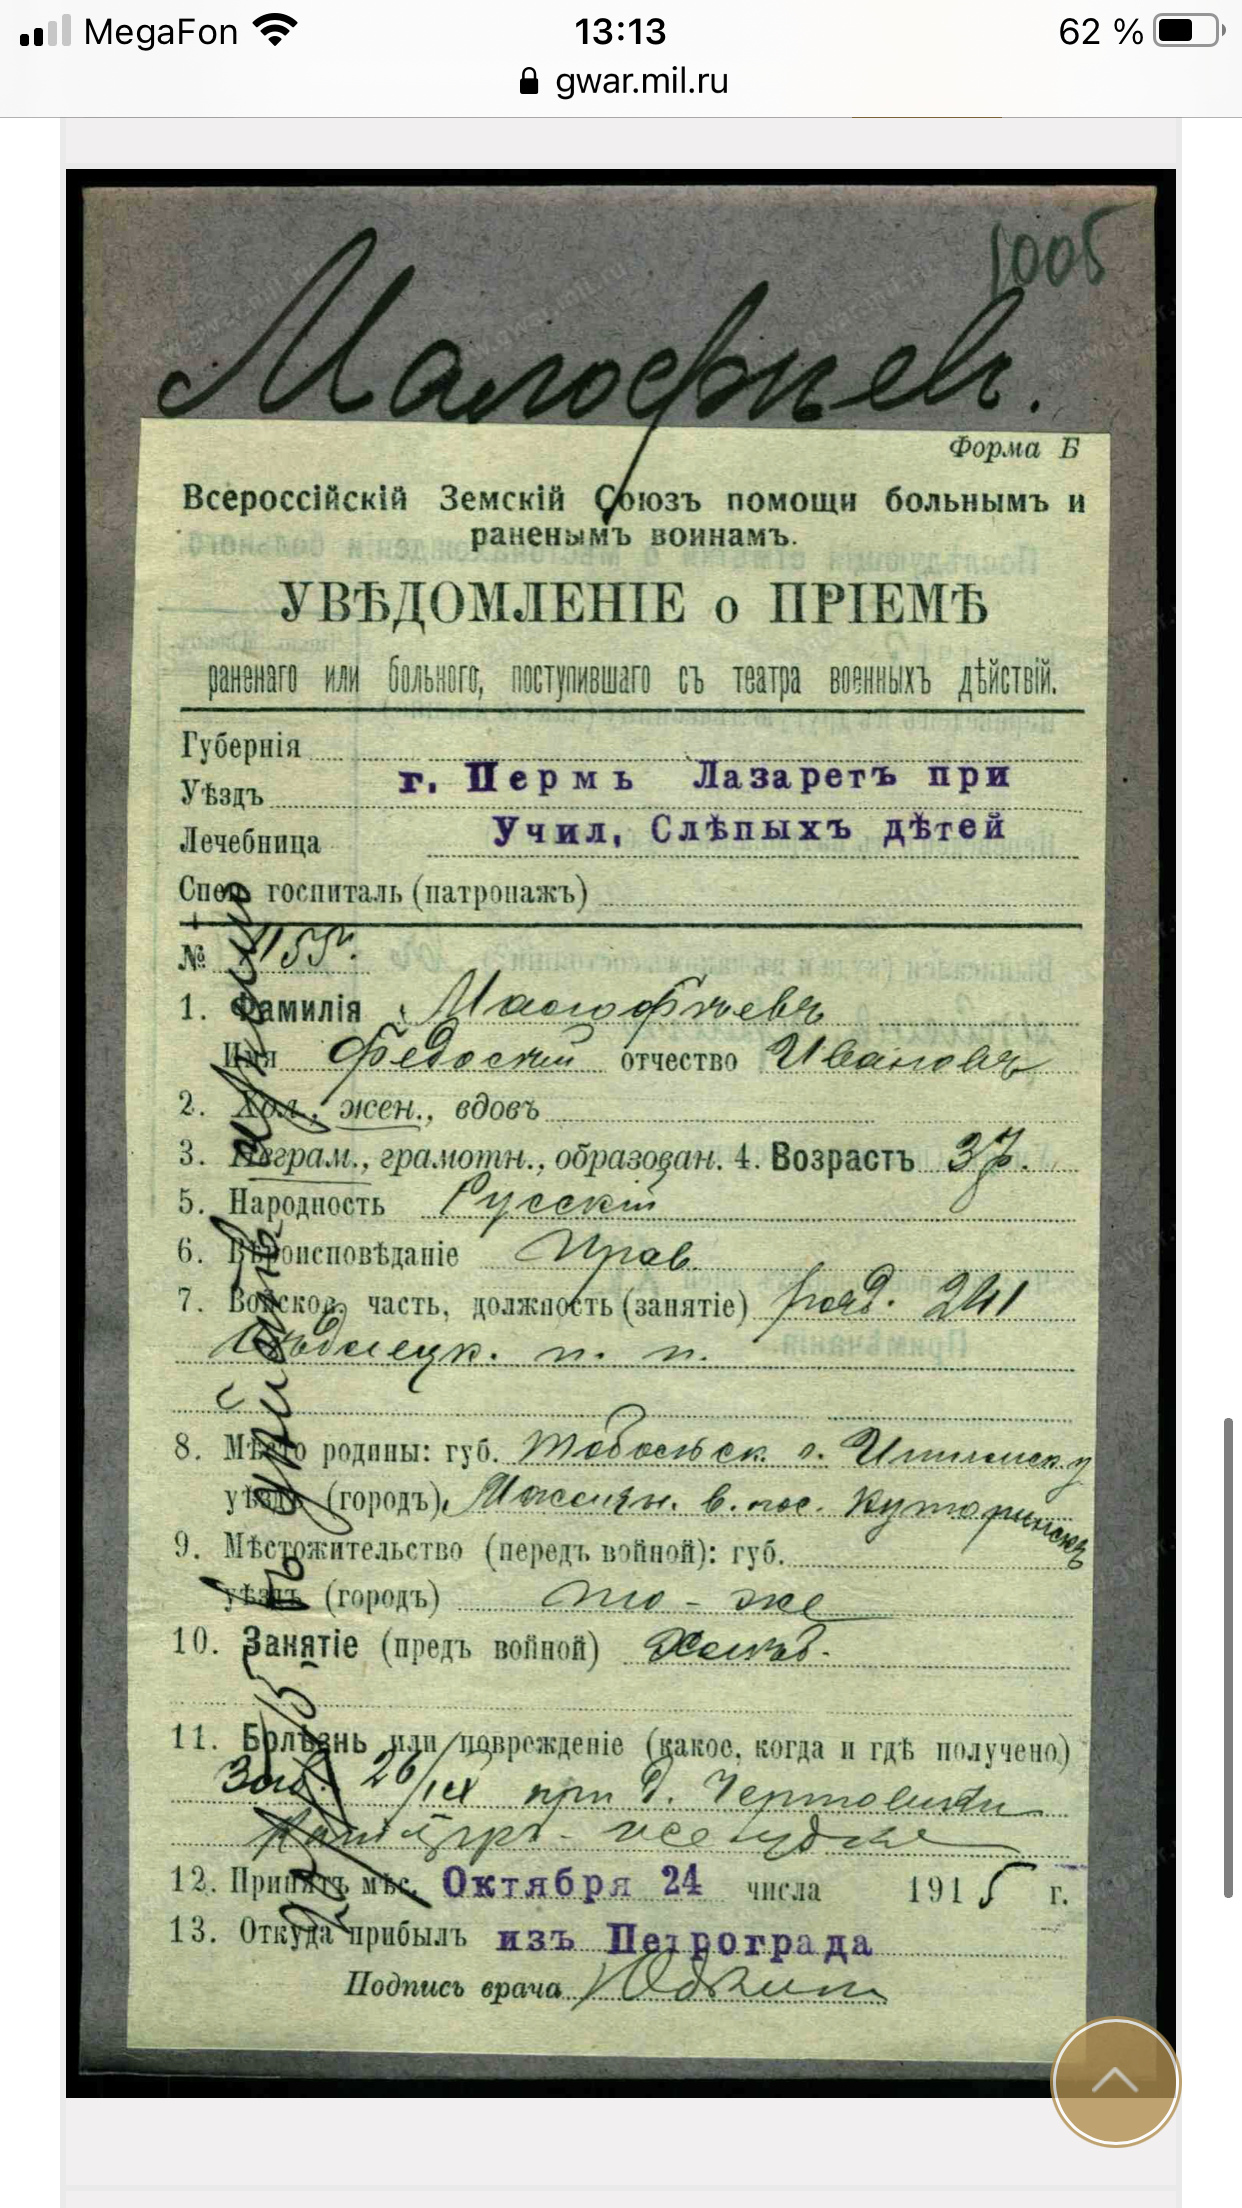 MegaFon 13:13 62 %
gwar.mil.ru
1005
Малофѣев.
Форма Б
Всероссійскій Земскій Союзъ помощи больнымъ и
раненымъ воинамъ.
УВѢДОМЛЕНІЕ о ПРІЕМѢ
раненаго или больного, поступившаго съ театра военныхъ дѣйствій.
Губернія
г. Пермь Лазаретъ при
Уѣздъ
Учил. Слѣпыхъ дѣтей
Лечебница
Спец. госпиталь (патронажъ)
№ 1155
1. Фамилія Малофѣевъ
Имя Федосѣй отчество Ивановъ
2. Хол., жен., вдовъ
3. Неграм., грамотн., образован. 4. Возрастъ 37.
5. Народность Русскій
6. Вѣроисповѣданіе Прав.
7. Войсков. часть, должность (занятіе) ряд. 241
Сѣдлецк. п. п.
8. Мѣсто родины: губ. Тобольск. г. Ишимск. у
уѣздъ (городъ) в. пос.
9. Мѣстожительство (передъ войной): губ.
уѣздъ (городъ) то-же
10. Занятіе (предъ войной) Хлѣб.
11. Болѣзнь или поврежденіе (какое, когда и гдѣ получено)
Заб. 26/IX при д.
желудка
12. Принятъ мѣс. Октября 24 числа 1915 г.
13. Откуда прибылъ изъ Петрограда
Подпись врача